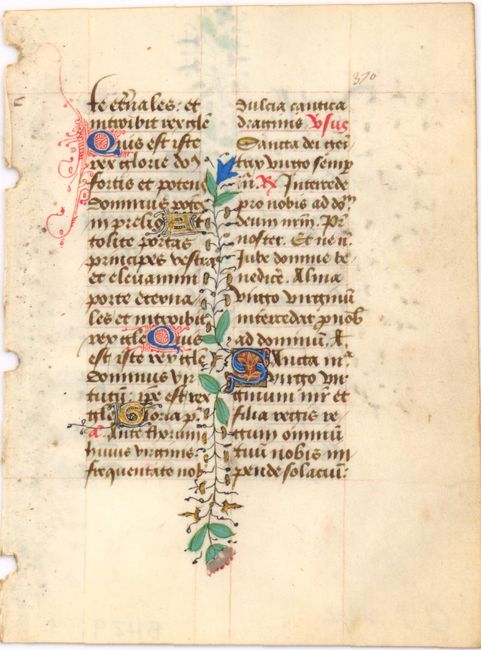 370
te eternales: et
introibit rex gle
Quis est iste
rex glorie do
fortis et potens
dominus poten
in prelio At
tolite portas
principes vestras
et elevamini
porte eterna
les et introibit
rex gle Quis
est iste rex gle
Dominus vir
tutum ipe est rex
gle Gloria p
a. Ante thorum
huius virginis
frequentate nob
dulcia cantica
dragmis Vsus
Sancta dei geni
trix virgo semp
m R Intercede
pro nobis ad dom
deum nrm. Pr
noster. Et ne n.
Iube domne be
nedice. Alma
virgo virginum
intercedat p nob
ad dominum. A.
Sancta mr
virgo vir
ginum mr et
filia regis re
gum omnium
tuum nobis im
pende solacium: